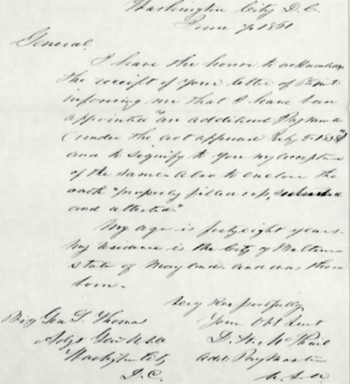 Washington City D.C.
June 7 1861
General
I have the honor to acknowledge
the receipt of your letter of
informing me that I have been
appointed an additional Paymaster
(under the act approved July 5 1838)
and to signify to you my acceptance
of the same. Also to enclose the
oath "properly filled up,
and attested"
My age is forty eight years
My residence is the City of Baltimore
State of Maryland and was there
born.
Very Respectfully
Your Obt Servt
Brig Gen L Thomas
Adjt Genl U.S.A.
Washington City
D.C.
Addl Paymaster
U.S.A.